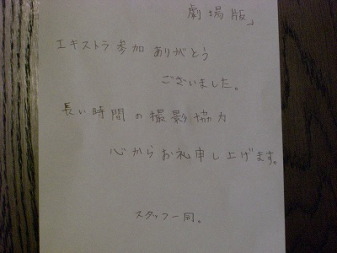 劇場版」
エキストラ参加ありがとう
ございました。
長い時間の撮影協力
心からお礼申し上げます。
スタッフ一同。